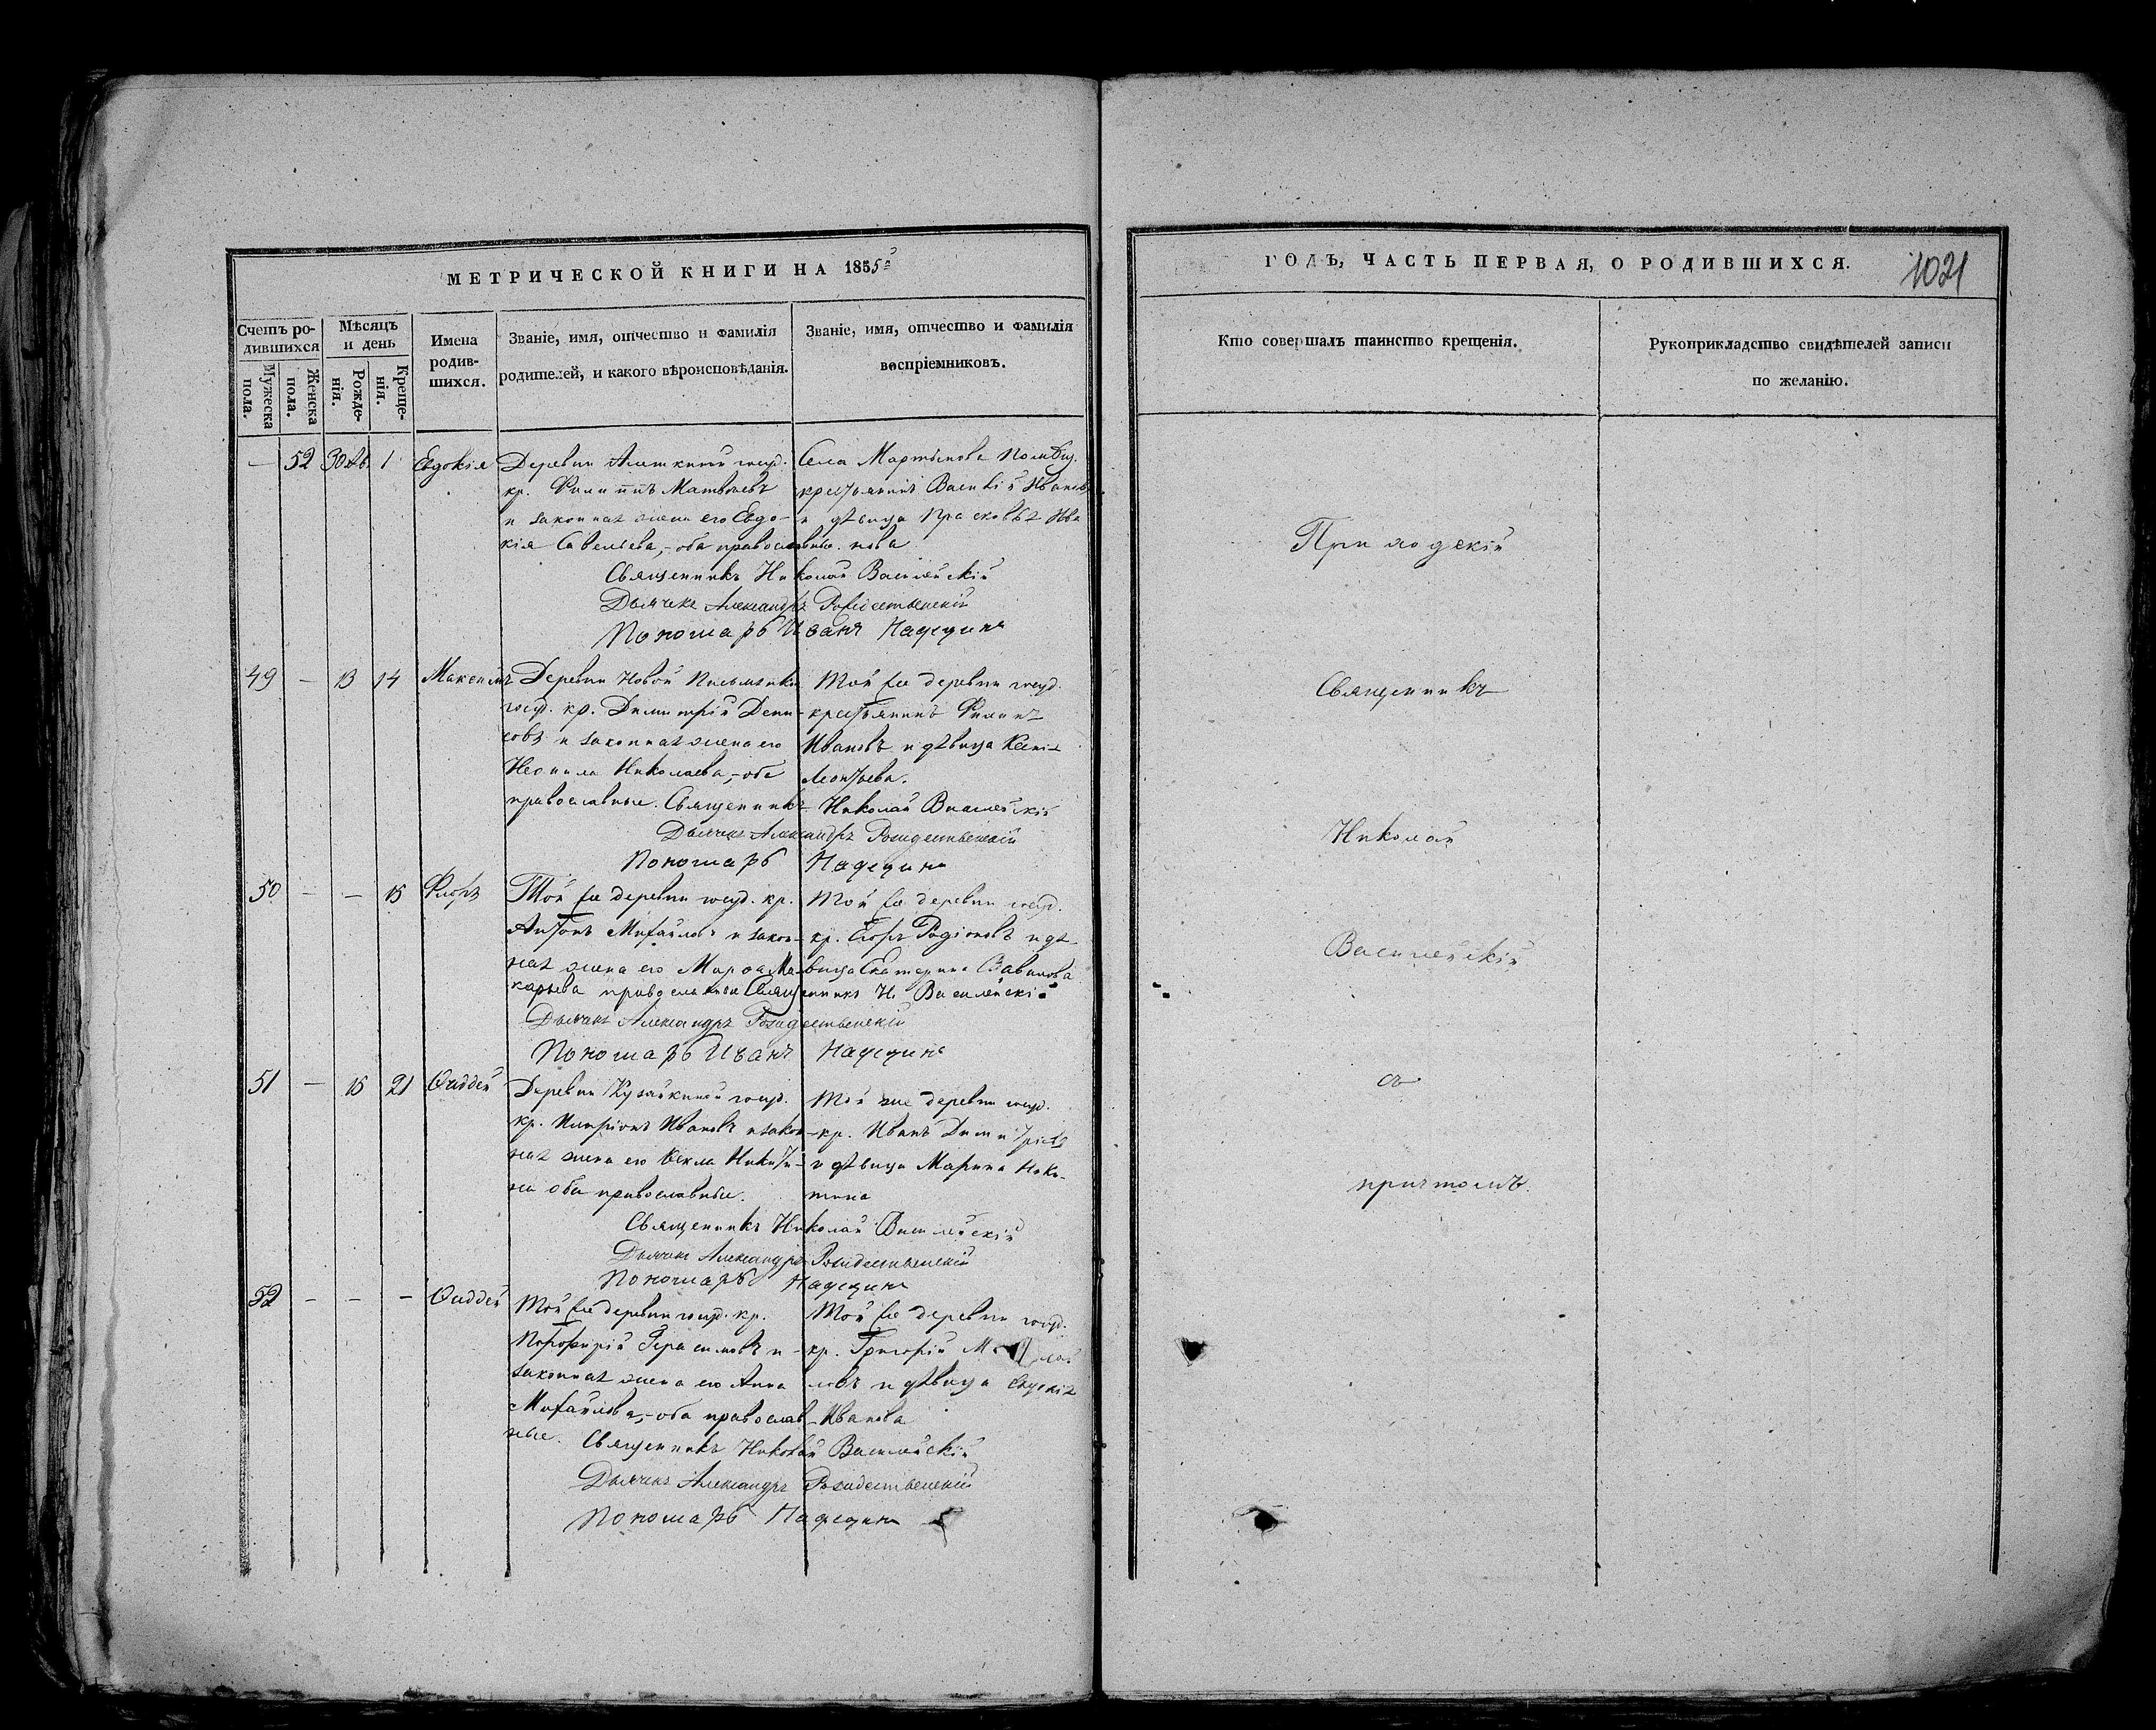 МЕТРИЧЕСКОЙ КНИГИ НА 1855й
Счетъ ро-
дившихся
Мѣсяцъ
и день
Имена
родив-
шихся.
Званіе, имя, отчество и фамилія
родителей, и какого вѣроисповѣданія.
Званіе, имя, отчество и фамилія
воспріемниковъ.
Мужеска
пола.
Женска
пола.
Рожде-
нія.
Креще-
нія.
— 52 30 Ав. 1 Евдокія
Деревни госуд.
кр. Филиппъ Матвѣевъ
и законная жена его Евдо-
кія Савельева,- оба православные.
Села Мартынова
крестьянинъ Василій Ивановъ
и дѣвица Прасковья Ива
нова
Священникъ Николай Васильевскій
Дьячекъ Александръ Рождественскій
Пономарь Иванъ Надеждинъ
49 — 13 14 Максимъ
Деревни Новой Письмянки
госуд. кр. Димитрій Дени-
совъ и законная жена его
Неонила Николаева,- оба
православные.
Той же деревни госуд.
крестьянинъ Филипъ
Ивановъ и дѣвица Ксенія
Леонтьева.
Священникъ Николай Васильевскій
Дьячекъ Александръ Рождественскій
Пономарь Надеждинъ
50 — — 15 Флоръ
Той же деревни госуд. кр.
Антонъ Михайловъ и закон-
ная жена его Марѳа Ма-
карьева православные
Той же деревни госуд.
кр. Егоръ Родіоновъ и дѣ-
вица Екатерина Вавилова
Священникъ Н. Васильевскій
Дьячекъ Александръ Рождественскій
Пономарь Иванъ Надеждинъ
51 — 15 21 Ѳаддей
Деревни Кузайкиной госуд.
кр. Иларіонъ Ивановъ и закон
ная жена его Ѳекла Никити-
на оба православные.
Той же деревни госуд.
кр. Иванъ Димитріевъ
и дѣвица Марина Ники-
тина
Священникъ Николай Васильевскій
Дьячекъ Александръ Рождественскій
Пономарь Надеждинъ
52 — — — Ѳаддей
Той же деревни госуд. кр.
Порфирій Герасимовъ и
законная жена его Анна
Михайлова,- оба православ
ные.
Той же деревни госуд.
кр. Григорій
ловъ и дѣвица Евдокія
Иванова
Священникъ Николай Васильевскій
Дьячекъ Александръ Рождественскій
Пономарь Надеждинъ
ГОДЪ, ЧАСТЬ ПЕРВАЯ, О РОДИВШИХСЯ.
1021
Кто совершалъ таинство крещенія.
Рукоприкладство свидѣтелей записи
по желанію.
Приходскій
Священникъ
Николай
Васильевскій
съ
причтомъ.